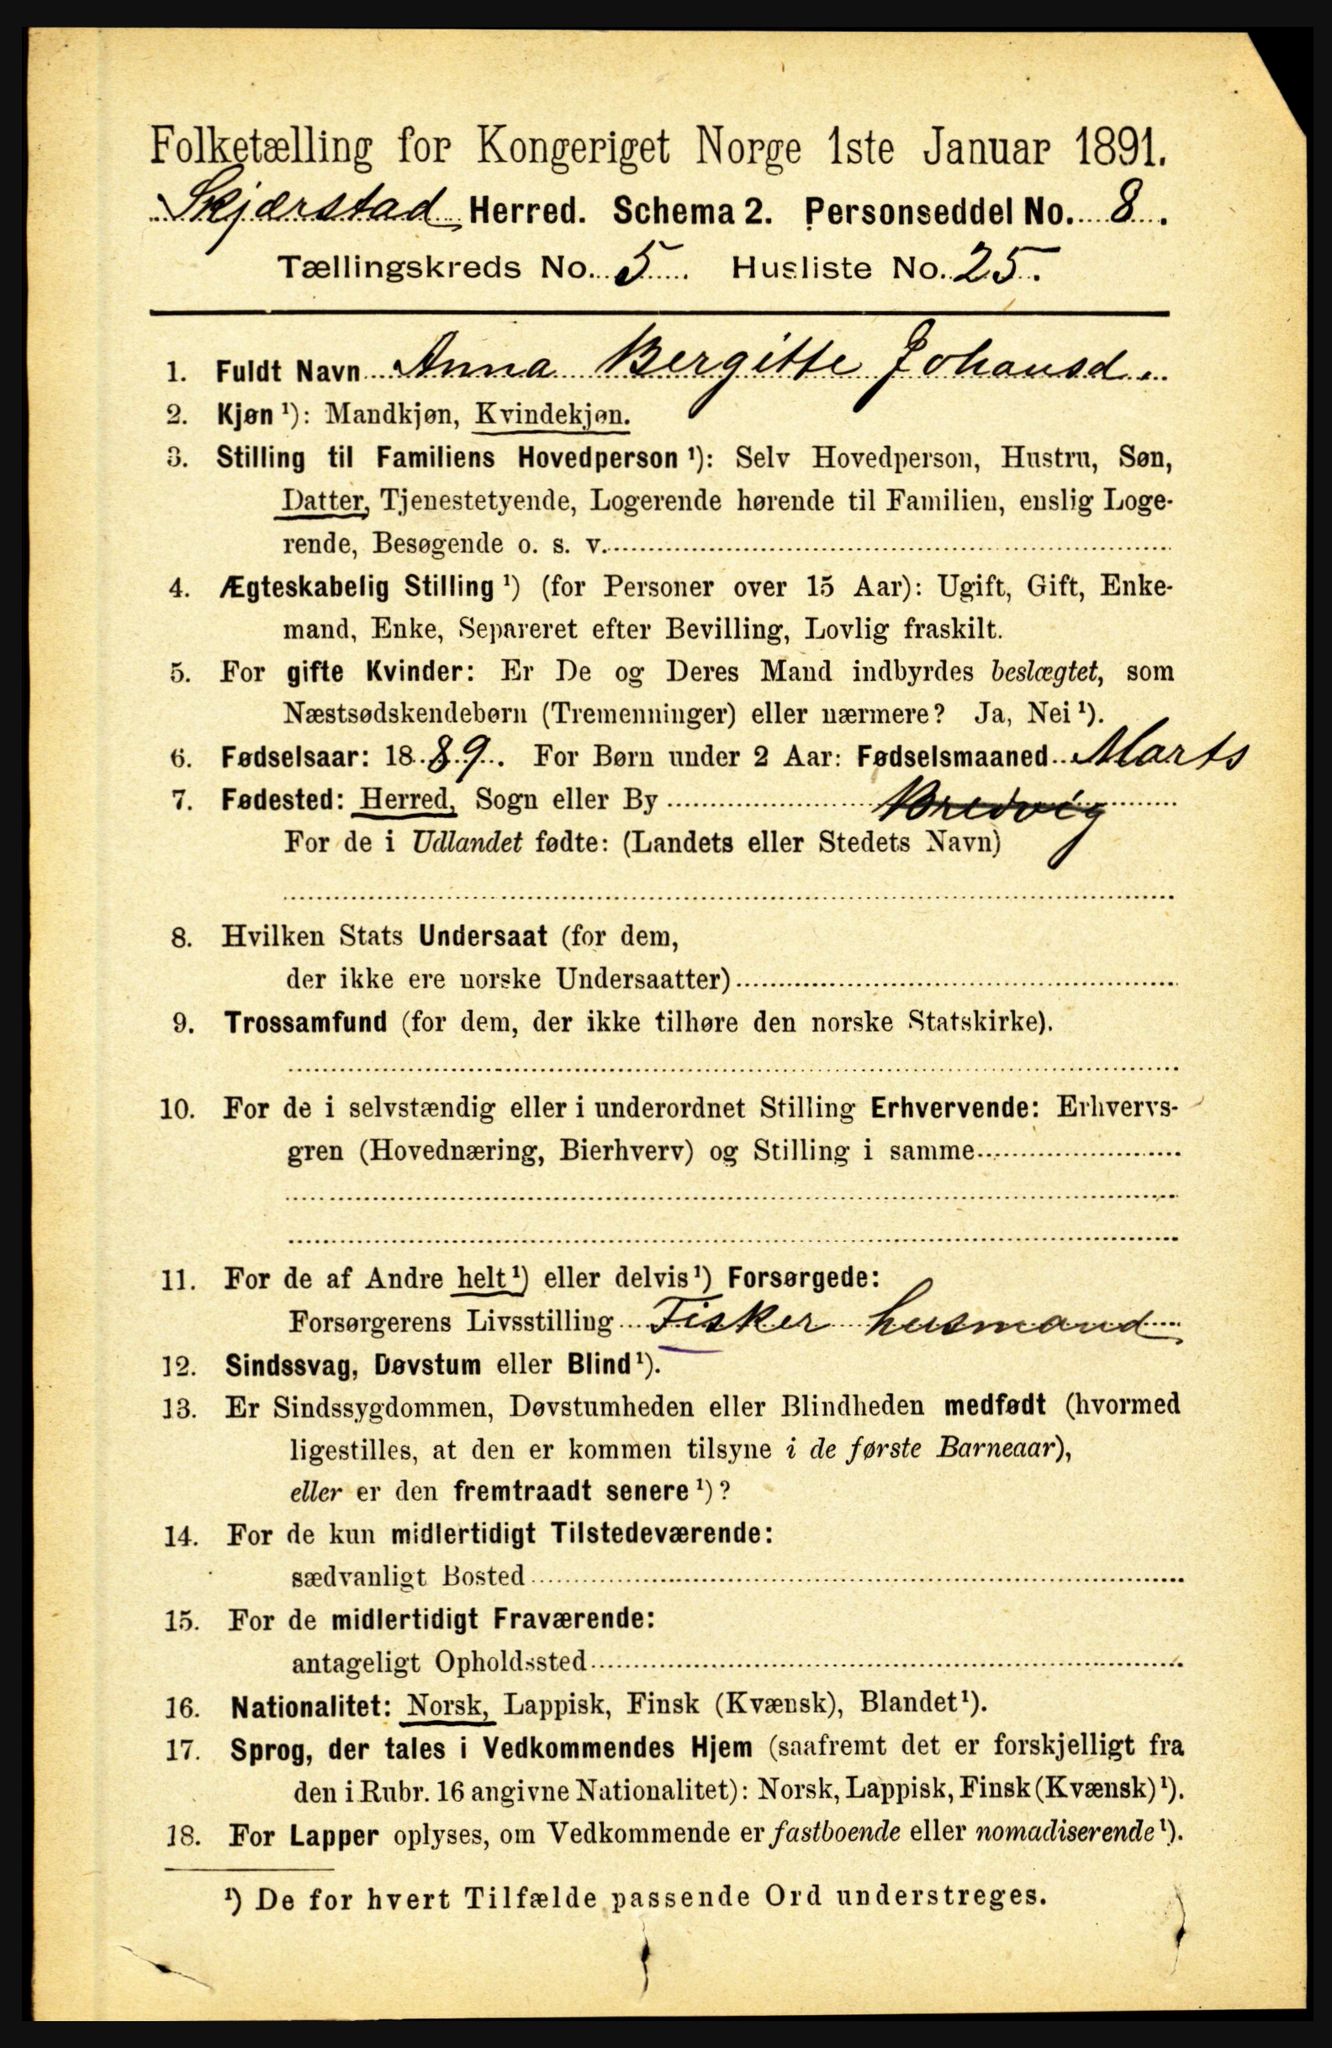 Folketælling for Kongeriget Norge 1ste Januar 1891.
Skjærstad Herred. Schema 2. Personseddel No. 8.
Tællingskreds No. 5. Husliste No. 25.
1. Fuldt Navn Anna Bergitte Johansd.
2. Kjøn ¹): Mandkjøn, Kvindekjøn.
3. Stilling til Familiens Hovedperson ¹): Selv Hovedperson, Hustru, Søn,
Datter, Tjenestetyende, Logerende hørende til Familien, enslig Loge-
rende, Besøgende o. s. v.
4. Ægteskabelig Stilling ¹) (for Personer over 15 Aar): Ugift, Gift, Enke-
mand, Enke, Separeret efter Bevilling, Lovlig fraskilt.
5. For gifte Kvinder: Er De og Deres Mand indbyrdes beslægtet, som
Næstsødskendebørn (Tremenninger) eller nærmere? Ja, Nei ¹).
6. Fødselsaar: 1889. For Børn under 2 Aar: Fødselsmaaned Marts
7. Fødested: Herred, Sogn eller By Bredvig
For de i Udlandet fødte: (Landets eller Stedets Navn)
8. Hvilken Stats Undersaat (for dem,
der ikke ere norske Undersaatter)
9. Trossamfund (for dem, der ikke tilhøre den norske Statskirke).
10. For de i selvstændig eller i underordnet Stilling Erhvervende: Erhvervs-
gren (Hovednæring, Bierhverv) og Stilling i samme
11. For de af Andre helt ¹) eller delvis ¹) Forsørgede:
Forsørgerens Livsstilling Fisker husmand
12. Sindssvag, Døvstum eller Blind ¹).
13. Er Sindssygdommen, Døvstumheden eller Blindheden medfødt (hvormed
ligestilles, at den er kommen tilsyne i de første Barneaar),
eller er den fremtraadt senere ¹)?
14. For de kun midlertidigt Tilstedeværende:
sædvanligt Bosted
15. For de midlertidigt Fraværende:
antageligt Opholdssted
16. Nationalitet: Norsk, Lappisk, Finsk (Kvænsk), Blandet ¹).
17. Sprog, der tales i Vedkommendes Hjem (saafremt det er forskjelligt fra
den i Rubr. 16 angivne Nationalitet): Norsk, Lappisk, Finsk (Kvænsk) ¹).
18. For Lapper oplyses, om Vedkommende er fastboende eller nomadiserende ¹).
¹) De for hvert Tilfælde passende Ord understreges.